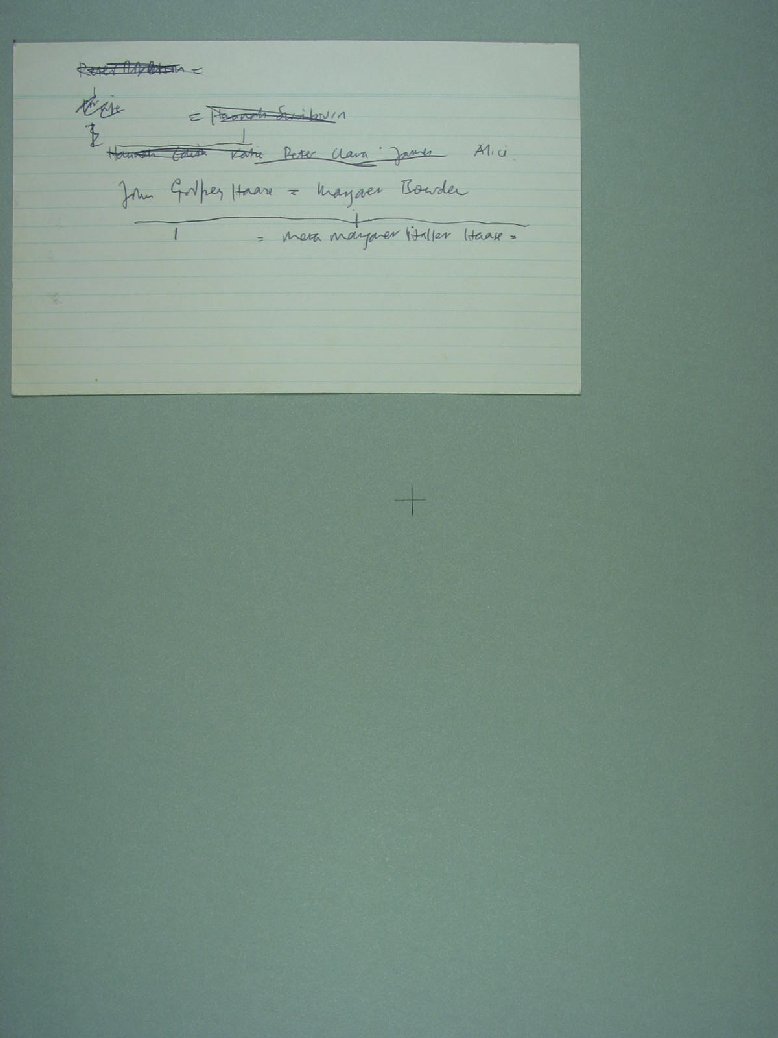 =
= Hannah
Hannah Edith Katie Peter Clara James Alice
John Godfrey Haare = Margaret Bowden
= Meta Margaret Haller Haare =